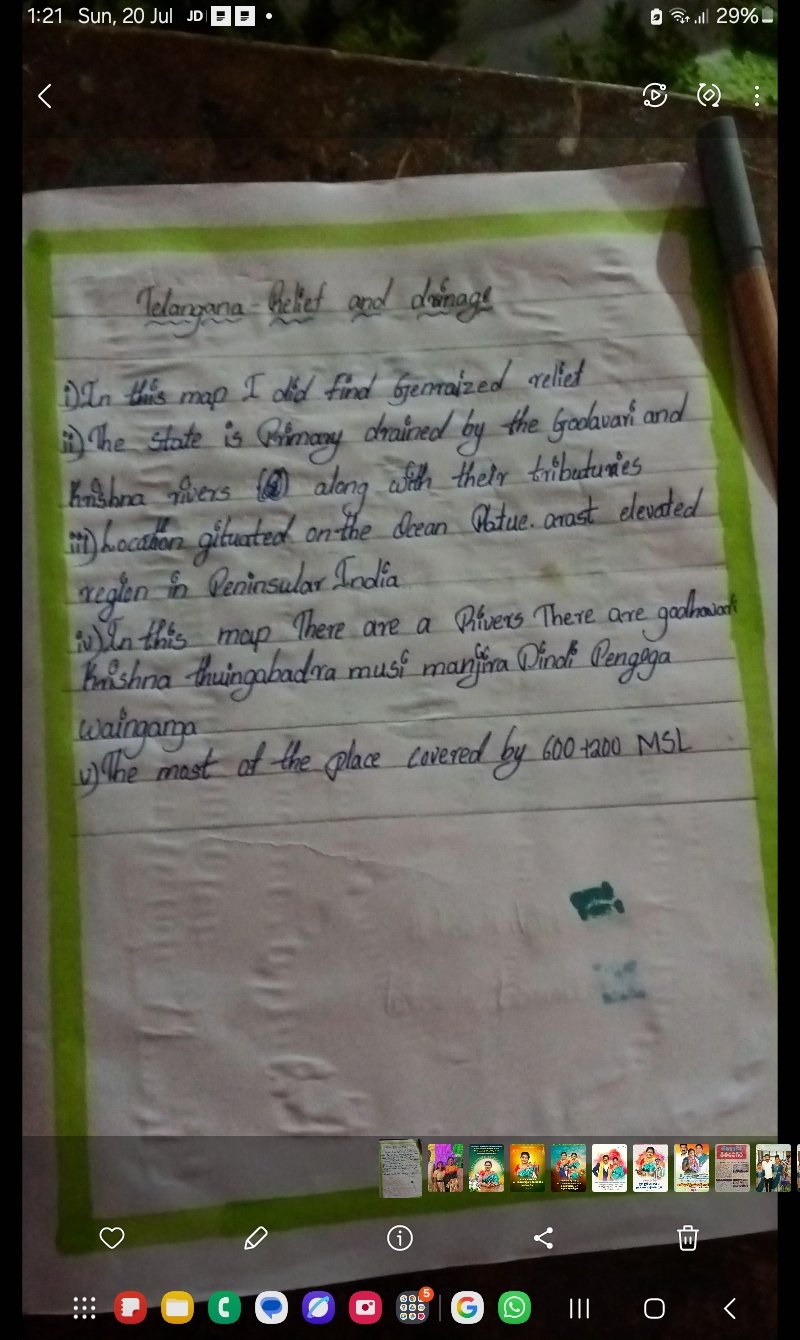 1:21 Sun, 20 Jul JD
29%
Telangana - Relief and drinage
i) In this map I did find Genraized relief
ii) The state is Primary drained by the Godavari and
Krishna rivers along with their tributuries
iii) Location gituated on the Ocean Platue. arast elevated
region in Peninsular India
iv) In this map There are a Rivers There are godhavari
Krishna thuingabadra musi manjira Dindi Pengega
wainganga
v) The most of the place covered by 600+1200 MSL
5